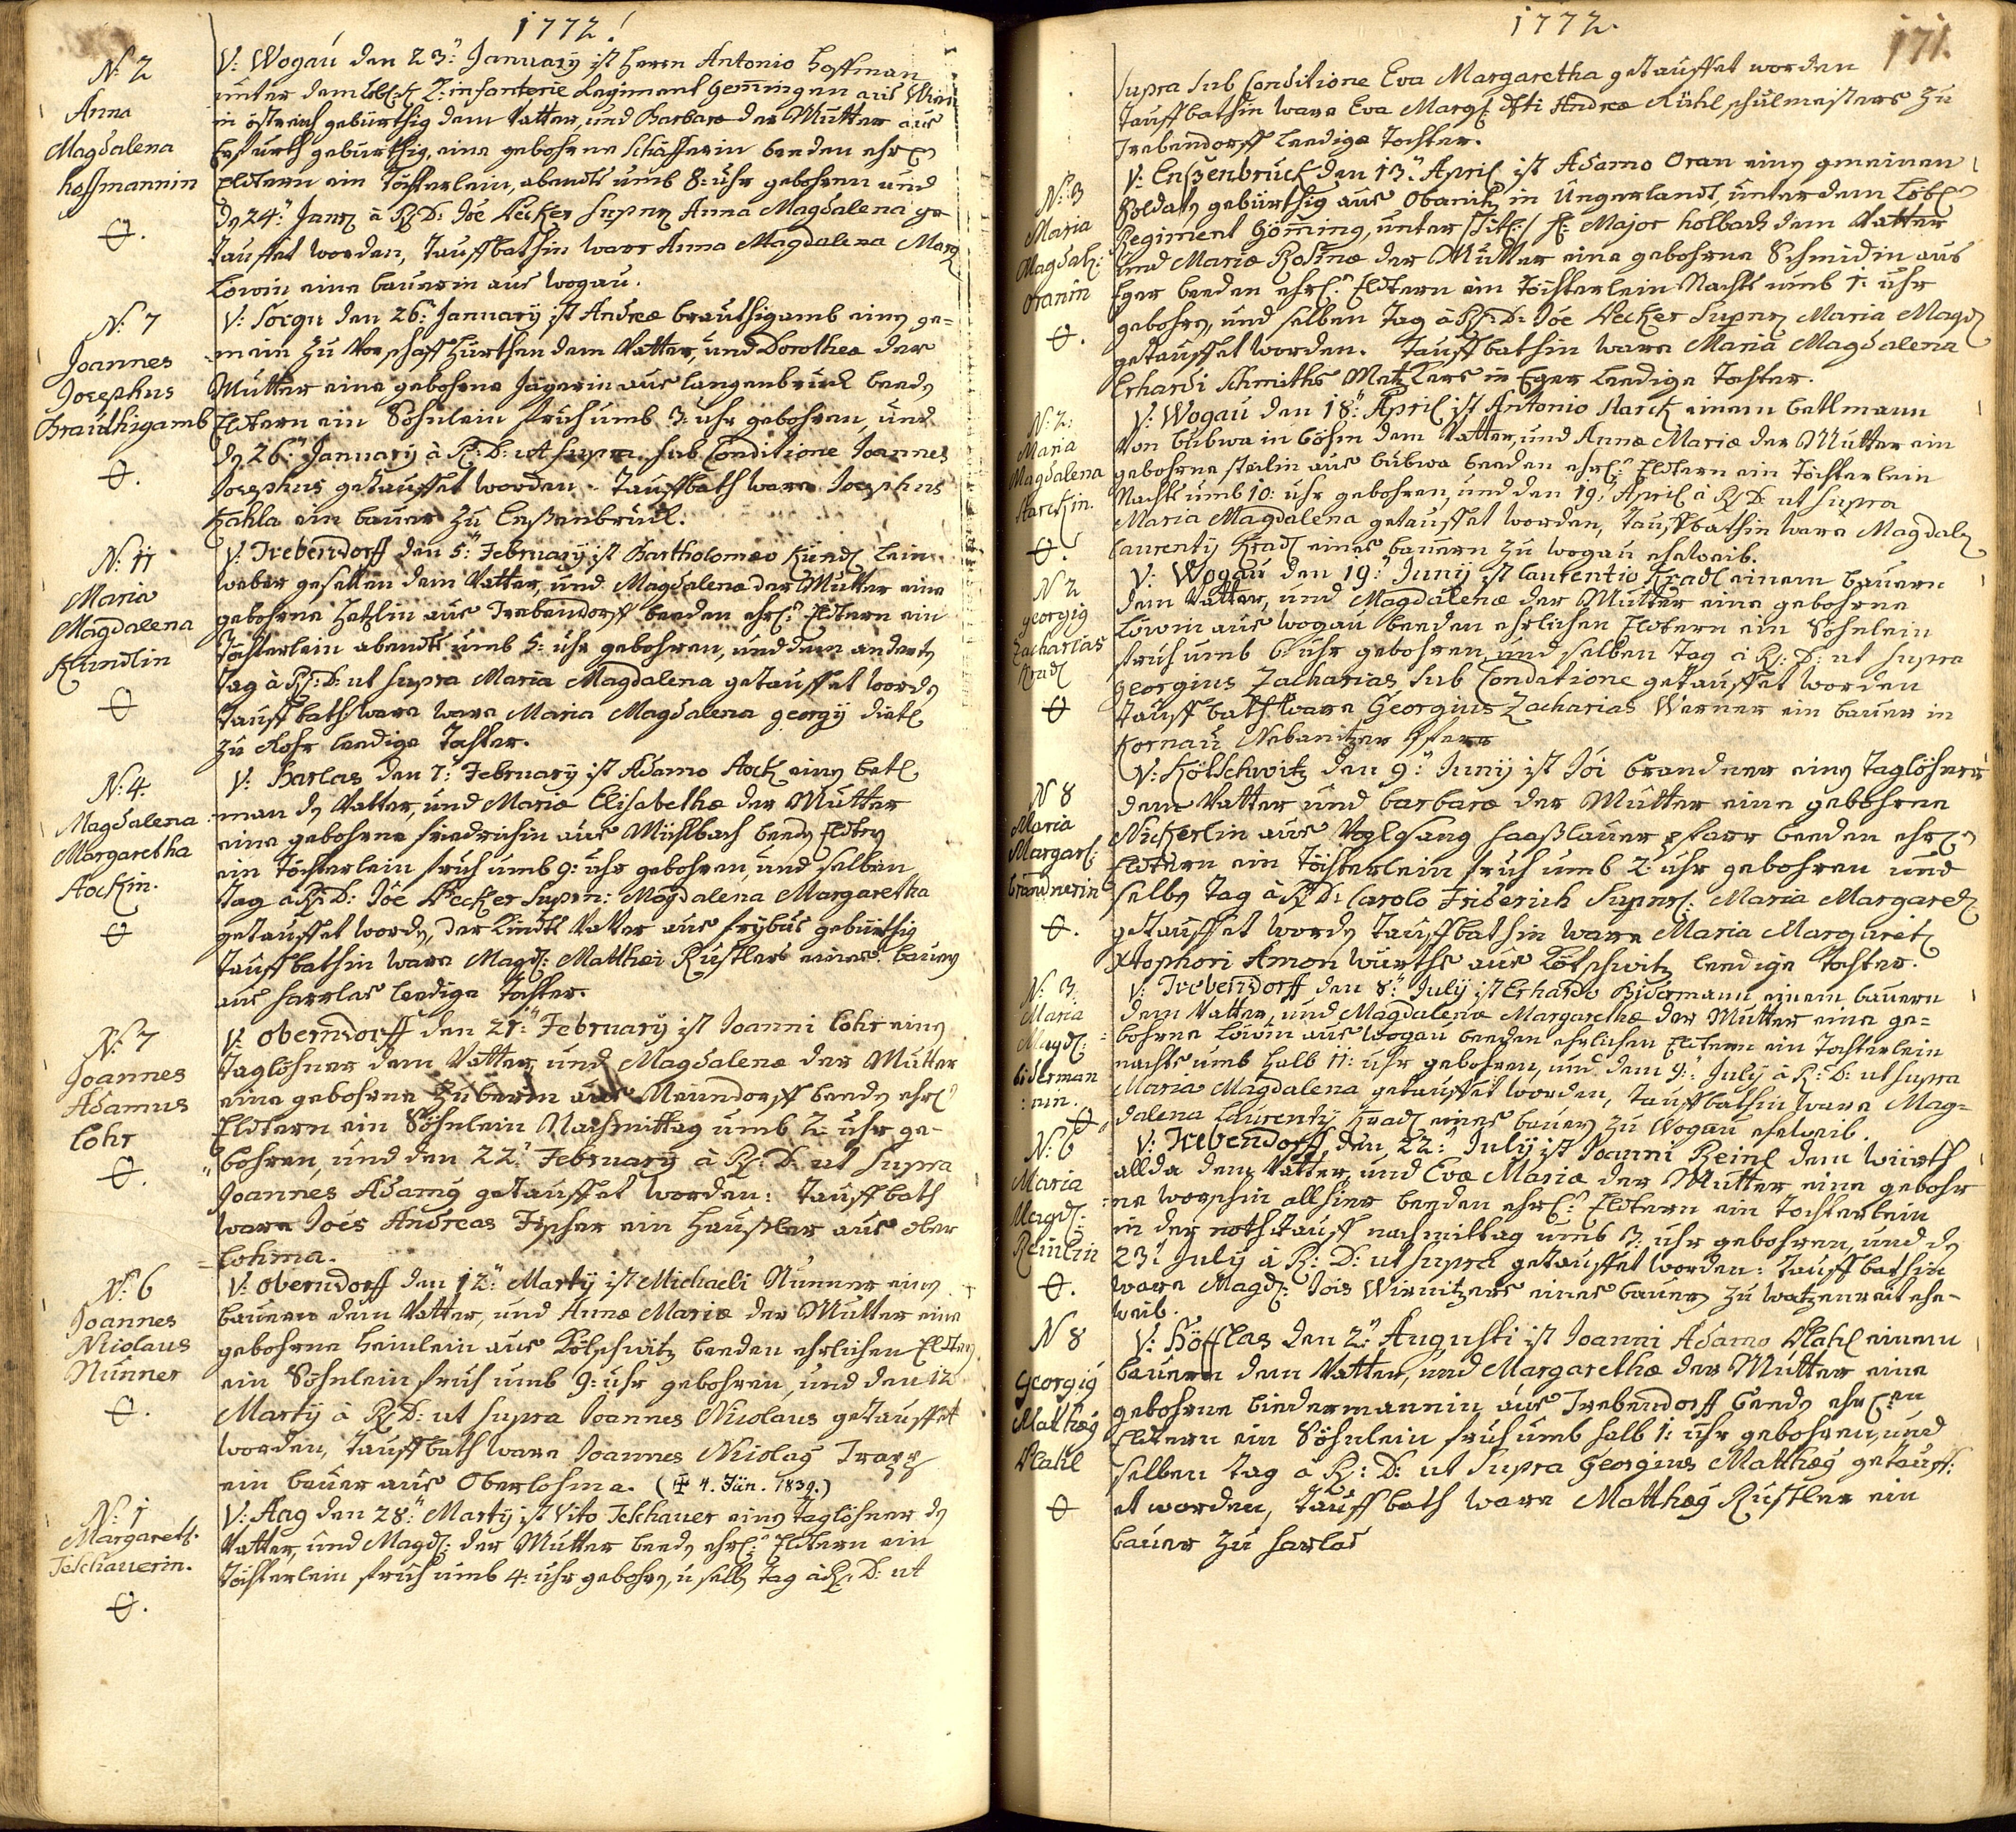 1772.
N: 2
Anna
Magdalena
Hoffmannin
V: Wogau den 23: January ist Herrn Antonio Hoffman
unter dem Löbl: K: Z: infanterie Regiment Gemingen aus Wien
in östreich gebürthig dem Vatter, und Barbaræ der Mutter aus
gebürthig, eine gebohrne Schäfferin beeden ehrl
Eldtern ein Töchterlein, abendts umb 8: uhr gebohren und
dn 24: Janry à R: D: Jöe Pecker Anna Magdalena ge-
tauffet worden, Tauffbathin ware Anna Magdalena
Löwin eine bauerin aus Wogau.
N: 7
Joannes
Josephus
Bräuthigamb
V: Sorgn den 26: January ist Andreæ bräuthigamb einen ge-
mein zu hürthen dem Vatter, und Dorotheæ der
Mutter eine gebohrne Jägerin aus Langenbruck beeden
Eldtern ein Söhnlein fruh umb 3: uhr gebohren, und
dn 26: January à R: D: ut supra sub Conditione Joannes
Josephus getauffet worden. Tauffbath ware Josephus
Kahla ein bauer zu Enßenbruck.
N: 11
Maria
Magdalena
Kündlin
V: Trebendorff den 5: February ist Bartholomæo Kündl lein
weber gesellen dem Vatter, und Magdalenæ der Mutter eine
gebohrne aus Trebendorff beeden ehrl: Eldtern ein
Töchterlein abendts umb 5: uhr gebohren, und dem andern
Tag à R: D: ut supra Maria Magdalena getauffet worden
Tauffbath ware ware Maria Magdalena georgij dietl
zu Rohr leedige Tochter.
N: 4.
Magdalena
Margaretha
V: Harlas den 7: February ist Adamo einen betl
man dn Vatter, und Mariæ Elisabethæ der Mutter
eine gebohrne friedrichin aus Mühlbach beeden Eldtern
ein Töchterlein fruh umb 9: uhr gebohren, und selben
Tag à R: D: Jöe Pecker Magdalena Margaretha
getauffet worden, der Kindts Vatter aus gebürthig
Tauffbathin ware Magd: Matthæi Rustlers eines bauern
aus Harrlas leedige Tochter.
N: 7
Joannes
Adamus
Lohr
V: Oberndorff den 21: February ist Joanni Lohr einen
Taglöhner dem Vatter, und Magdalenæ der Mutter
eine gebohrne aus beeden ehrl
Eldtern ein Söhnlein Nachmittag umb 2: uhr ge-
bohren, und den 22: February à R: D: ut supra
Joannes Adamus getauffet worden: Tauffbath
ware Joes Andreas Fischer ein Haußler aus ober
Lohma.
N: 6
Joannes
Nicolaus
Nünner
V: Oberndorff den 12: Martij ist Michaeli Nünner einen
bauern dem Vatter, und Annæ Mariæ der Mutter eine
gebohrne Heinlein aus Kötschwitz beeden ehrlichen Eldtern
ein Söhnlein fruh umb 9: uhr gebohren, und den 12
Martij à R: D: ut supra Joannes Nicolaus getauffet
worden, Tauffbath ware Joannes Nicolaus
ein bauer aus Oberlohma. (4. Jän. 1839.)
N: 1
Margareth.
Teschauerin.
V: Aag den 28: Martij ist Vito Teschauer einen Taglöhner dn
Vatter, und Magd: der Mutter beeden ehrl: Eldtern ein
Töchterlein fruh umb 4: uhr gebohrn, u selben Tag à R: D: ut
1772.
171.
supra sub Conditione Eva Margaretha getauffet worden
Tauffbathin ware Eva Marg: Andreæ Kühl schulmeisters zu
Trebendorff leedige Tochter.
N: 3
Maria
Magdal:
Oranin
V: Enßenbruck den 13: April ist Adamo Oran einen gmeinen
Soldaten gebürthig aus Obanitz in Ungerlandt, unter dem Löbl
Regiment Göming, unter Major Holbach dem Vatter
und Mariæ Rosinæ der Mutter eine gebohrne Schmidin aus
Eger beeden ehrl: Eldtern ein Töchterlein Nachts umb 1: uhr
gebohrn, und selben Tag à R: D: Jöe Pecker Maria Magd
getauffet worden. Tauffbathin ware Maria Magdalena
Erhardi Schmiths Metzkers in Eger leedige Tochter.
N: 2:
Maria
Magdalena
V: Wogau den 18: April ist Antonio einem bettmann
Von bukwa in böhm dem Vatter, und Annæ Mariæ der Mutter ein
gebohrne aus bukwa beeden ehrl: Eldtern ein Töchterlein
Nachts umb 10: uhr gebohren, und den 19: April à R: D: ut supra
Maria Magdalena getauffet worden, Tauffbathin ware Magdal
Laurentij Kradl eines bauern zu Wogau eheweib.
N 2
georgig
Zacharias
Kradl
V: Wogau den 19: Junij ist Laurentio Kradl einem bauern
dem Vatter, und Magdalenæ der Mutter eine gebohrne
Löwin aus Wogau beeden ehrlichen Eldtern ein Söhnlein
fruh umb 6 uhr gebohren, und selben Tag à R: D: ut supra
Georgius Zacharias sub Conditione getauffet worden
Tauffbath ware Georgius Zacharias Werner ein bauer in
Kornau Nebanitzer Pfarr
N 8
Maria
Margar:
brandnerin
V: Kötschwitz den 9: Junij ist Joi brandner einen Taglöhner
dem Vatter und barbaræ der Mutter eine gebohrne
Nickerlin aus Voglgsang Haaßlauer pfarr beeden ehrl
Eldtern ein Töchterlein fruh umb 2: uhr gebohren und
selben Tag à R: D: Carolo Friderich Maria Margar
getauffet worden Tauffbathin ware Maria Margaret
Xtophori Amon würths aus Kötschwitz leedige Tochter.
N: 3
Maria
Magd:
biderman
nin.
V: Trebendorff den 8: July ist Erhardo Bidermann einem bauern
dem Vatter, und Magdalenæ Margarethæ der Mutter eine ge-
bohrne Löwin aus Wogau beeden ehrlichen Eldtern ein Tochterlein
nachts umb halb 11: uhr gebohren, und dem 9: July à R: D: ut supra
Maria Magdalena getauffet worden, Tauffbathin ware Mag-
dalena Laurentij Kradl eines bauern zu Wogau eheweib.
N: 6
Maria
Magd:
Reinlin
V: Trebendorff den 22: July ist Joanni Reinl dem würth
allda dem Vatter, und Evæ Mariæ der Mutter eine gebohr
ne allhier beeden ehrl: Eldtern ein Tochterlein
in der nothtauff nachmittag umb 3: uhr gebohren, und dn
23: July à R: D: ut supra getauffet worden: Tauffbathin
ware Magd: Jois Wirnitzers eines bauern zu Watzenreit ehe-
weib.
N 8
Georgig
Matthæg
Plahl
V: Höfflas den 2: Augusti ist Joanni Adamo Plahl einem
bauern dem Vatter, und Margarethæ der Mutter eine
gebohrne biedermannin aus Trebendorff beeden ehrl:en
Eldtern ein Söhnlein fruh umb halb 1: uhr gebohren, und
selben Tag à R: D: ut supra Georgius Matthæg getauff:
et worden, Tauffbath ware Matthæg Rustler ein
bauer zu Harlas